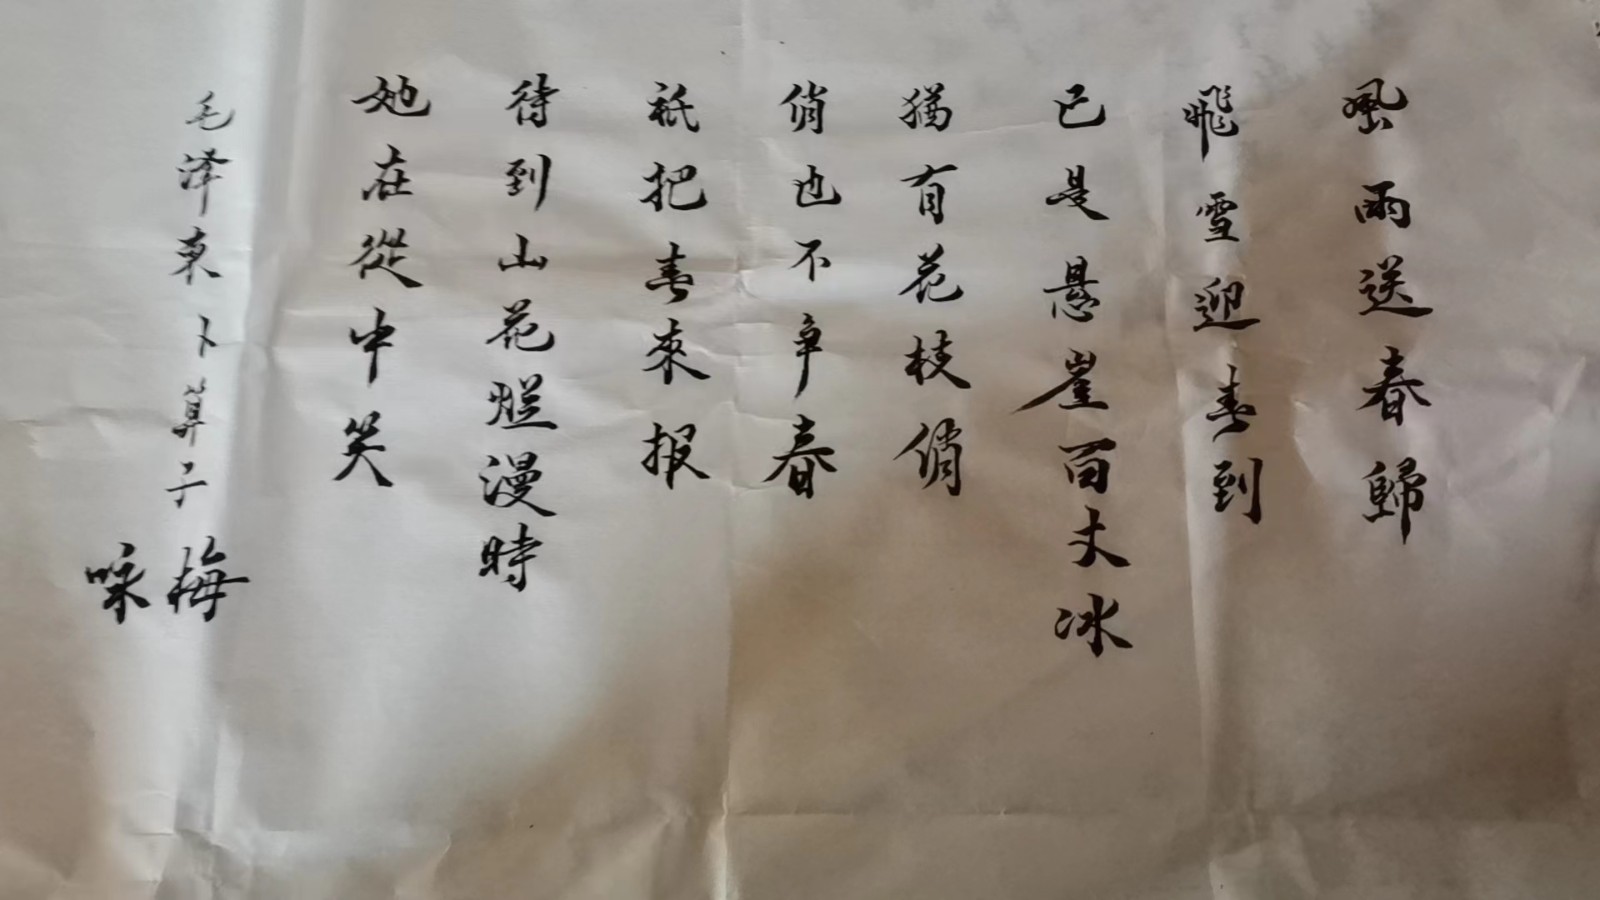 風雨送春歸
飛雪迎春到
已是悬崖百丈冰
猶有花枝俏
俏也不争春
祇把春來报
待到山花爛漫時
她在從中笑
毛泽東卜算子
咏梅